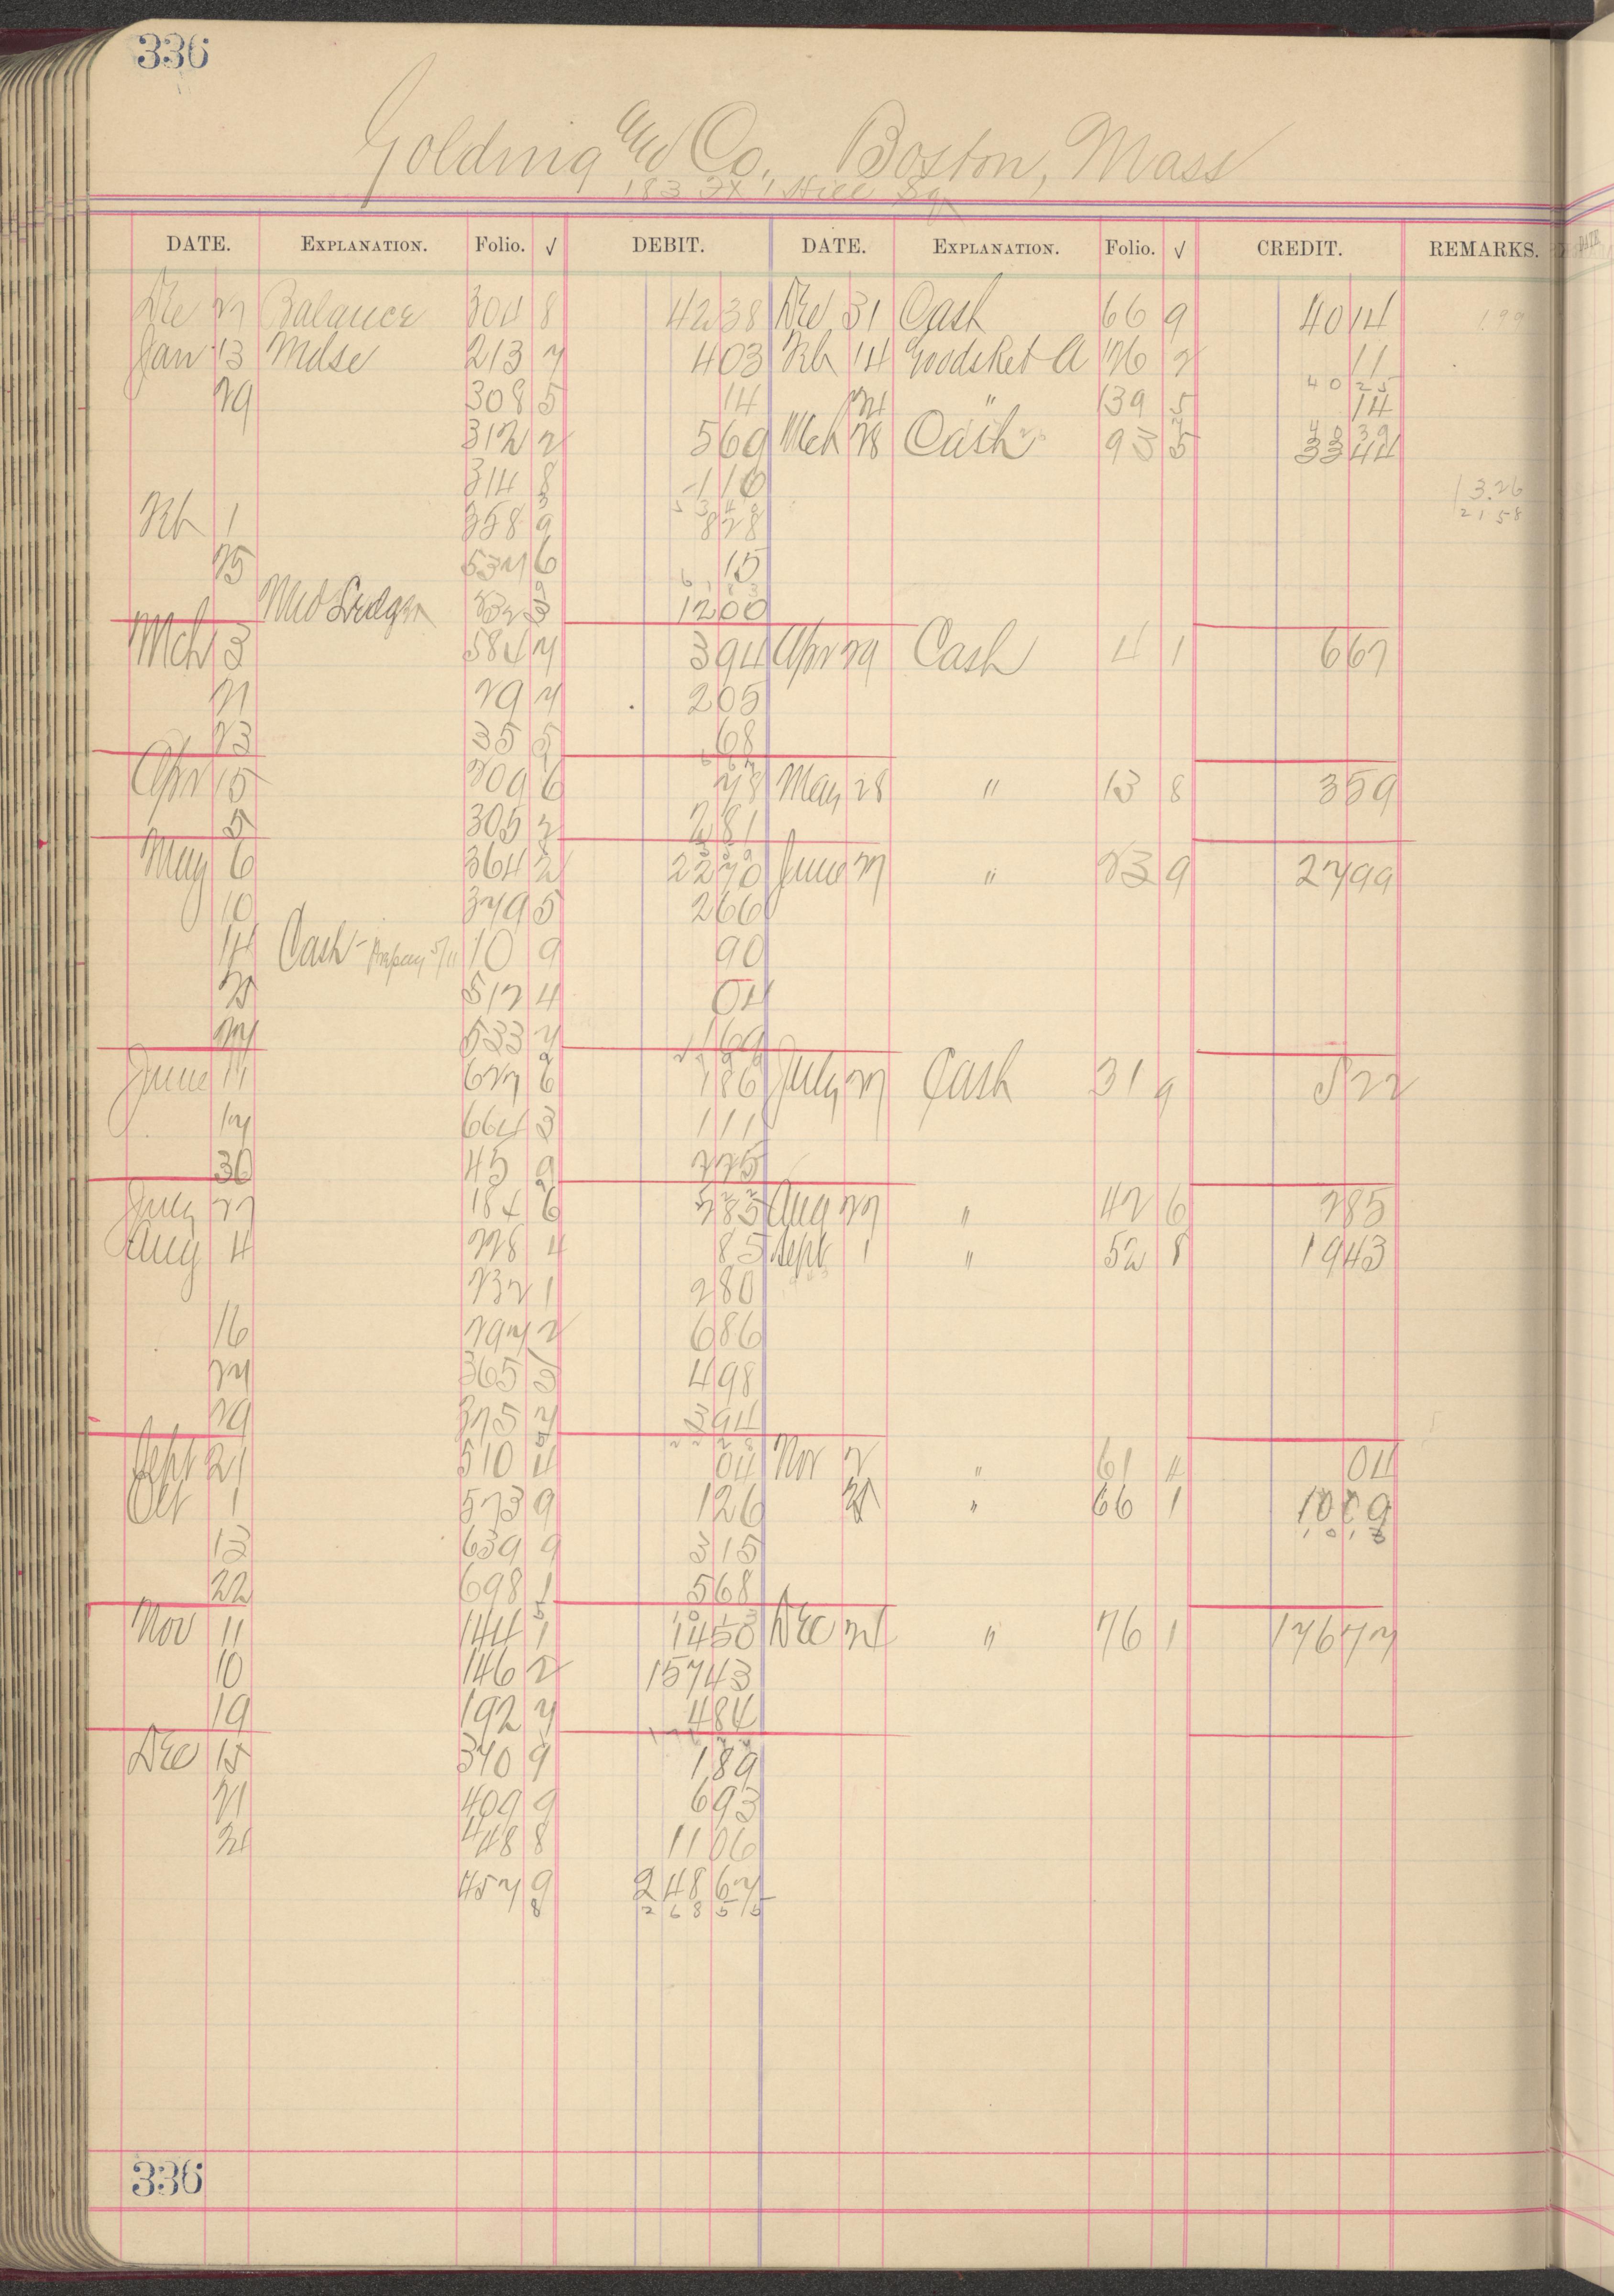 336
Golding and Co., Boston, Mass
183
DATE. EXPLANATION. Folio. √ DEBIT. DATE. EXPLANATION. Folio. √ CREDIT. REMARKS.
Dec 27 Balance 304 8 42 38 Dec 31 Cash 66 9 40 14 1.99
Jan 13 Mdse 213 7 4 03 Feb 14 Goods Ret A 126 2 11
40 25
29 308 5 14 24 " 139 5 14
312 2 5 69 Mch 28 Cash 93 5 33 44
314 8 1 10
13.26
Feb 1 358 9 8 28 21 58
25 534 6 15
Ledger 12 00
Mch 3 584 7 3 94 Apr 29 Cash 4 1 6 67
21 29 7 2 05
23 35 5 68
Apr 15 209 6 78 May 28 " 13 8 3 59
305 2 2 81
May 6 364 2 22 70 June 27 " 23 9 27 99
10 379 5 2 66
14 Cash - Prepay 5/11 10 9 90
517 4 04
27 533 7 1 69
June 11 627 6 1 86 July 27 Cash 31 9 5 22
17 664 3 1 11
30 45 9 2 25
July 27 184 6 2 85 Aug 27 " 42 6 2 85
Aug 4 228 4 85 Sept 1 " 52 8 19 43
232 1 2 80
16 297 2 6 86
24 365 5 4 98
29 375 7 3 94
Sept 21 510 4 04 Nov 2 " 61 4 04
Oct 1 573 9 1 26 " 66 1 10 09
13 639 9 3 15
22 698 1 5 68
Nov 11 144 1 14 50 Dec 24 " 76 1 176 77
10 146 2 157 43
19 192 7 4 84
Dec 15 340 9 1 89
21 409 9 6 93
24 448 8 11 06
457 9 248 67
8 268 55
336